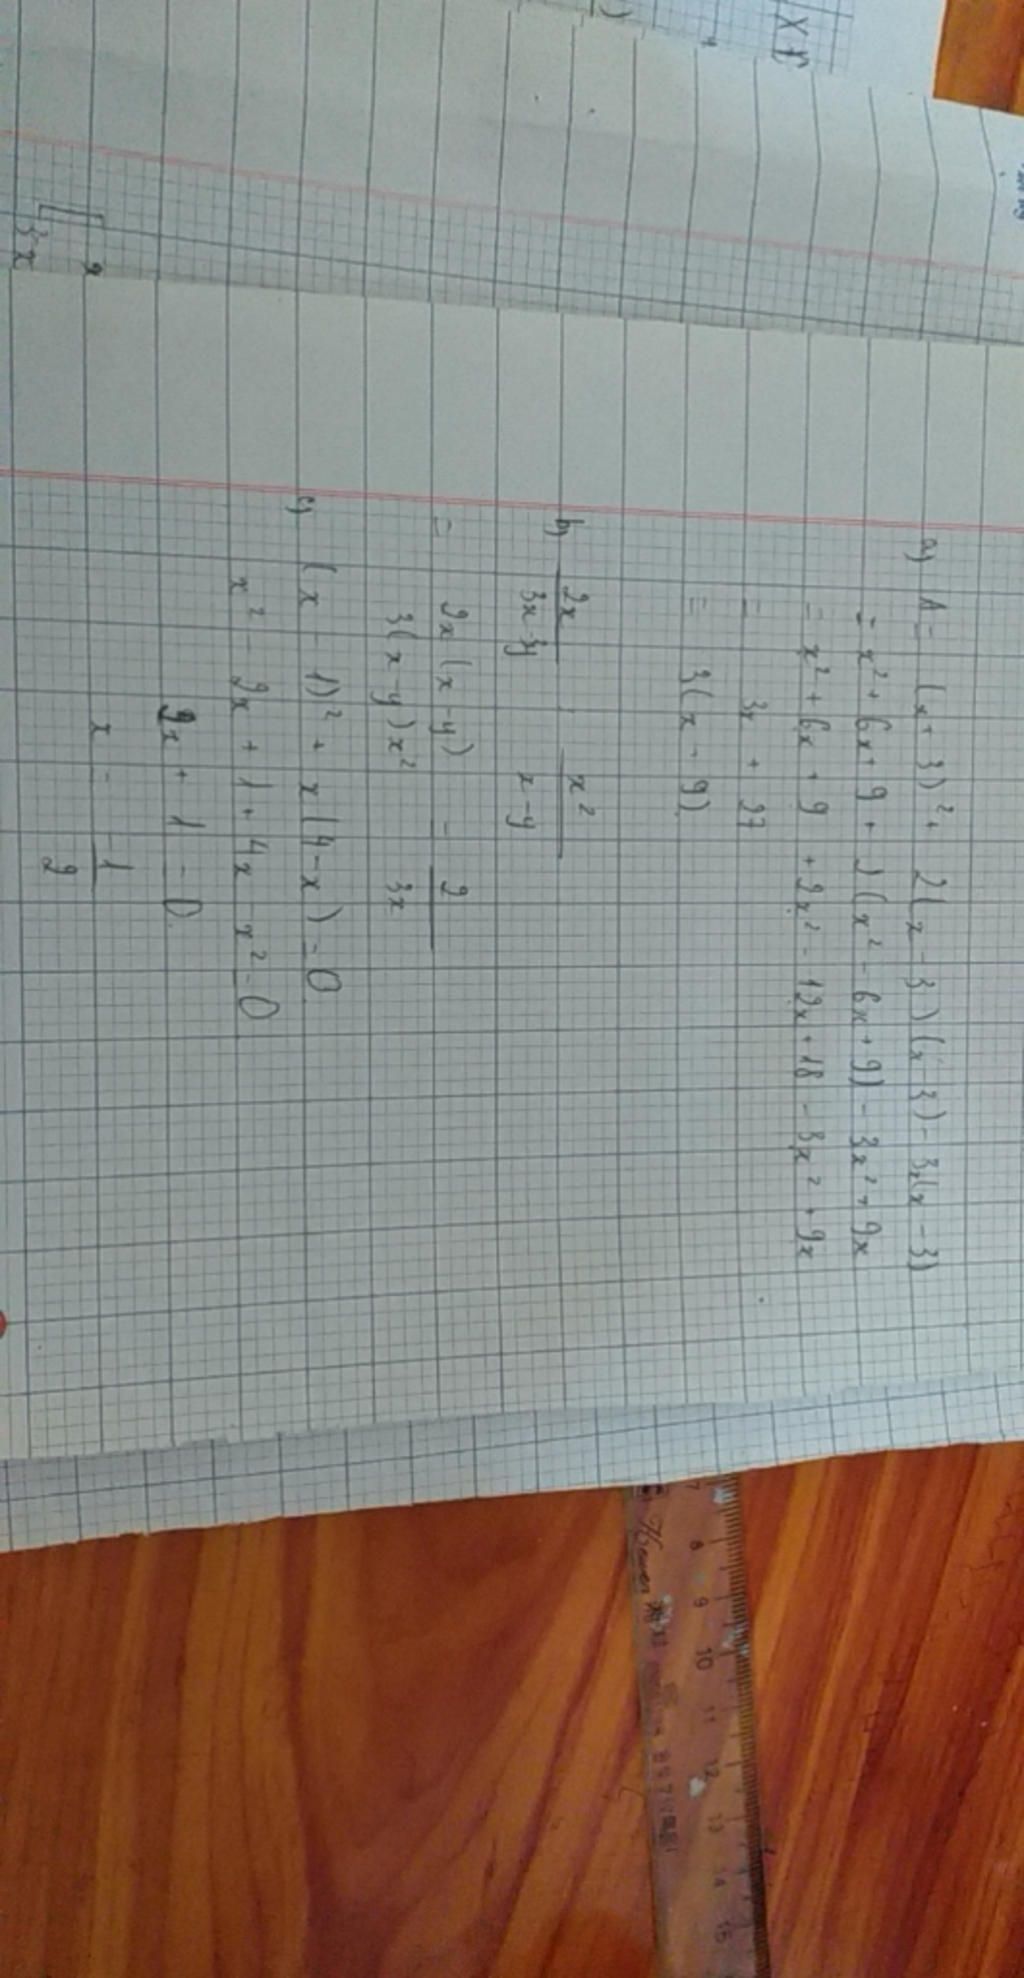 a) A = (x + 3)² + 2(x - 3)(x - 3) - 3x(x - 3)
= x² + 6x + 9 + 2(x² - 6x + 9) - 3x² + 9x
= x² + 6x + 9 + 2x² - 12x + 18 - 3x² + 9x
= 3x + 27
= 3(x + 9)
b) 2x/3x-3y : x²/x-y
= 2x(x-y)/3(x-y)x² = 2/3x
c) (x - 1)² + x(4-x) = 0
x² - 2x + 1 + 4x - x² = 0
2x + 1 = 0
x = -1/2
7 8 9 10 11 12 13 14 15